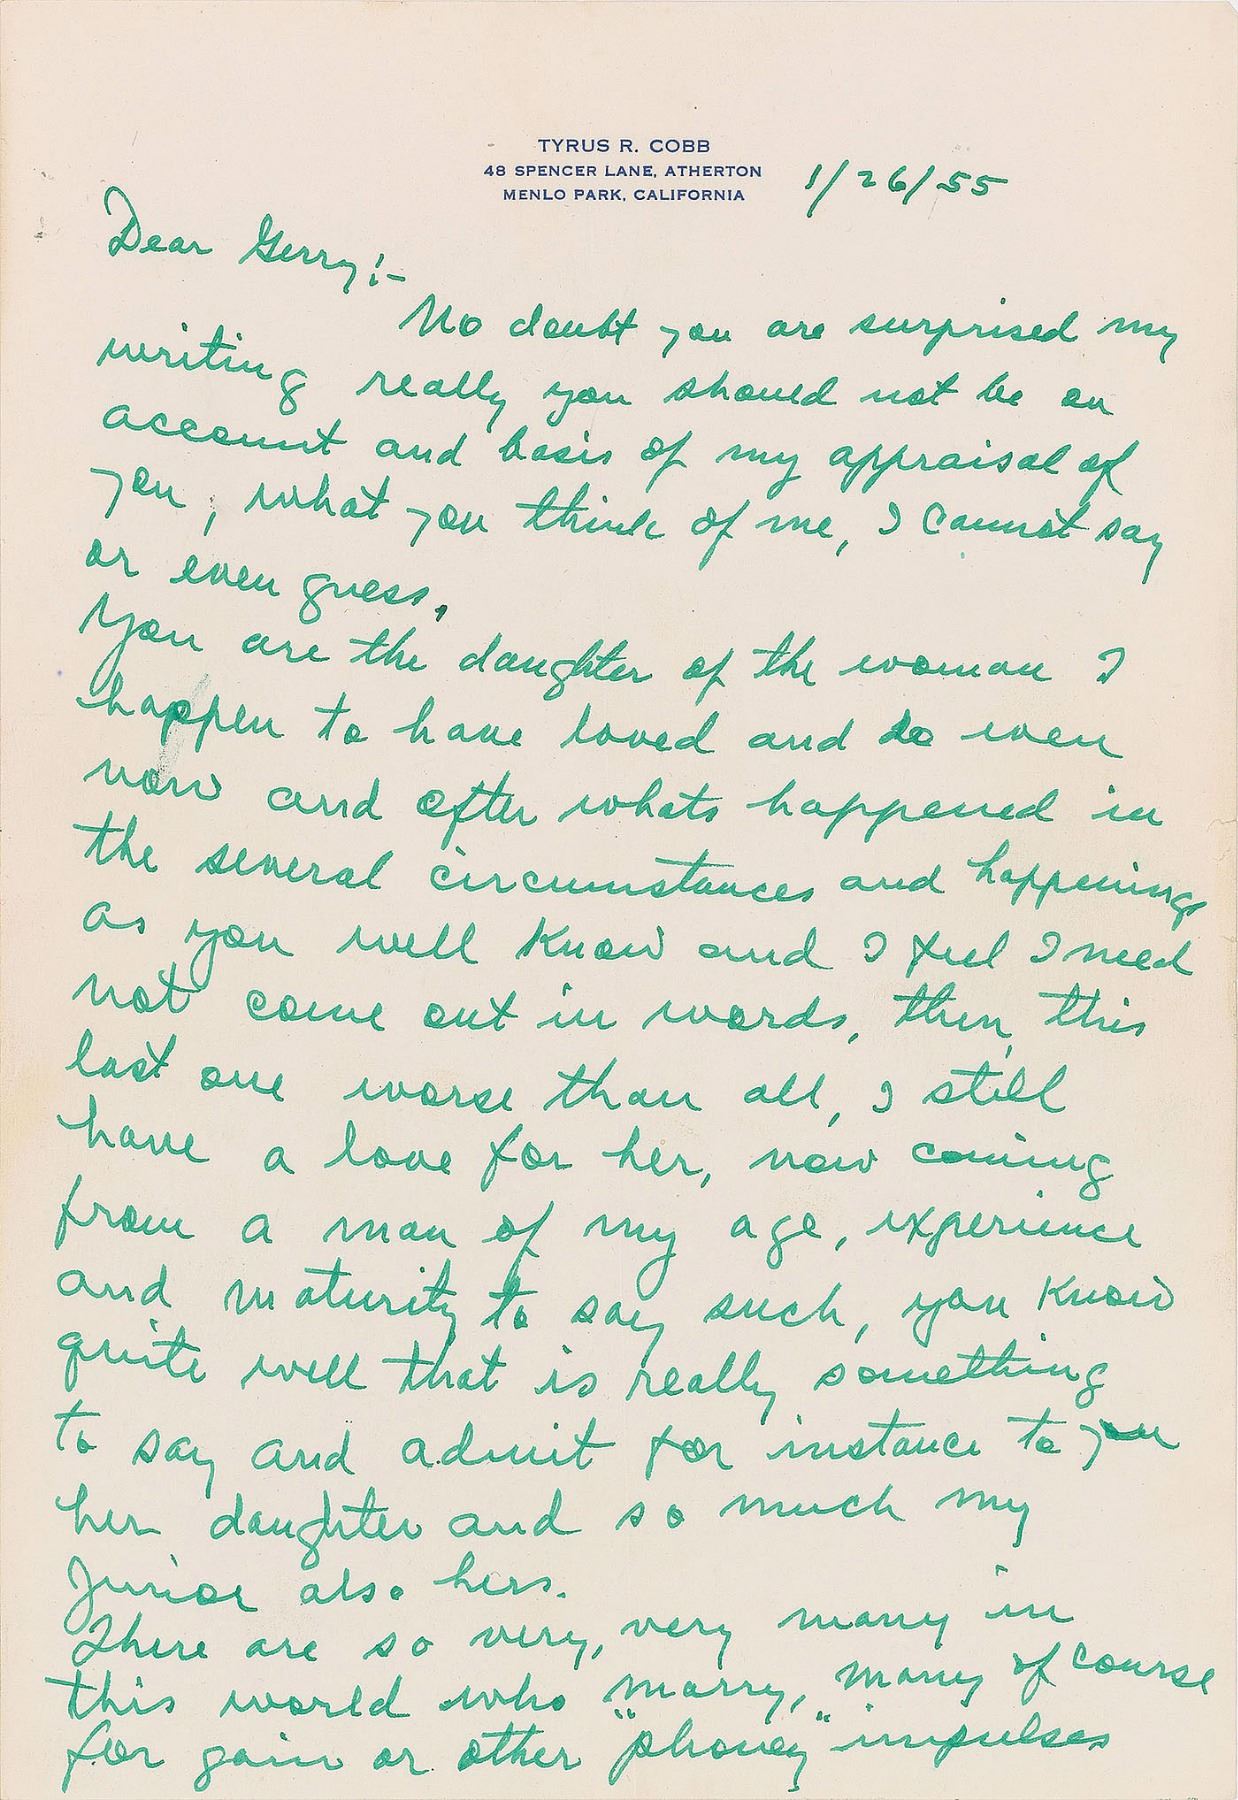 TYRUS R. COBB
48 SPENCER LANE, ATHERTON
MENLO PARK, CALIFORNIA
1/26/55
Dear Gerry:-
No doubt you are surprised my
writing really you should not be on
account and basis of my appraisal of
you, what you think of me, I cannot say
or even guess.
You are the daughter of the woman I
happen to have loved and do even
now and after whats happened in
the several circumstances and happenings
as you well know and I feel I need
not come out in words, then, this
last one worse than all, I still
have a love for her, now coming
from a man of my age, experience
and maturity to say such, you know
quite well that is really something
to say and admit for instance to you
her daughter and so much my
Junior also hers.
There are so very, very many in
this world who marry, many of course
for gain or other "phoney" impulses